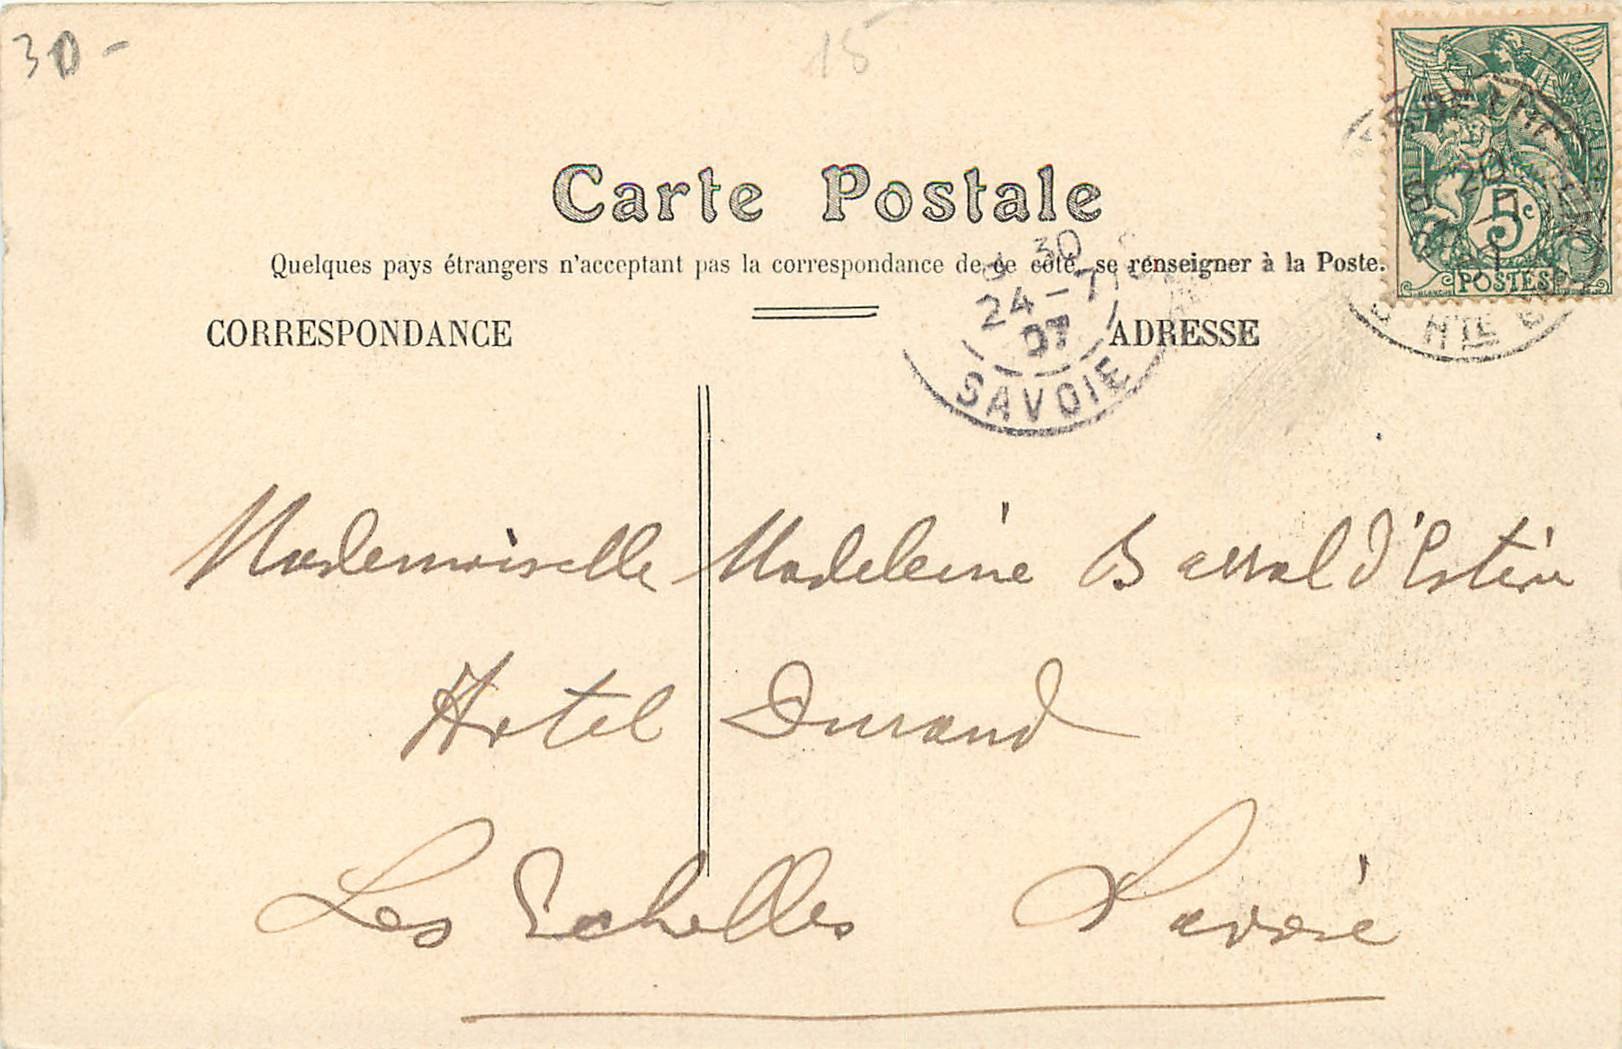 30 -
15
Carte Postale
Quelques pays étrangers n'acceptant pas la correspondance de ce côté, se renseigner à la Poste.
CORRESPONDANCE
ADRESSE
30
24 - 7
07
SAVOIE
20
5c
POSTES
Hte
Mademoiselle Madeleine Barral d'
Hotel Durand
Les Echelles Savoie